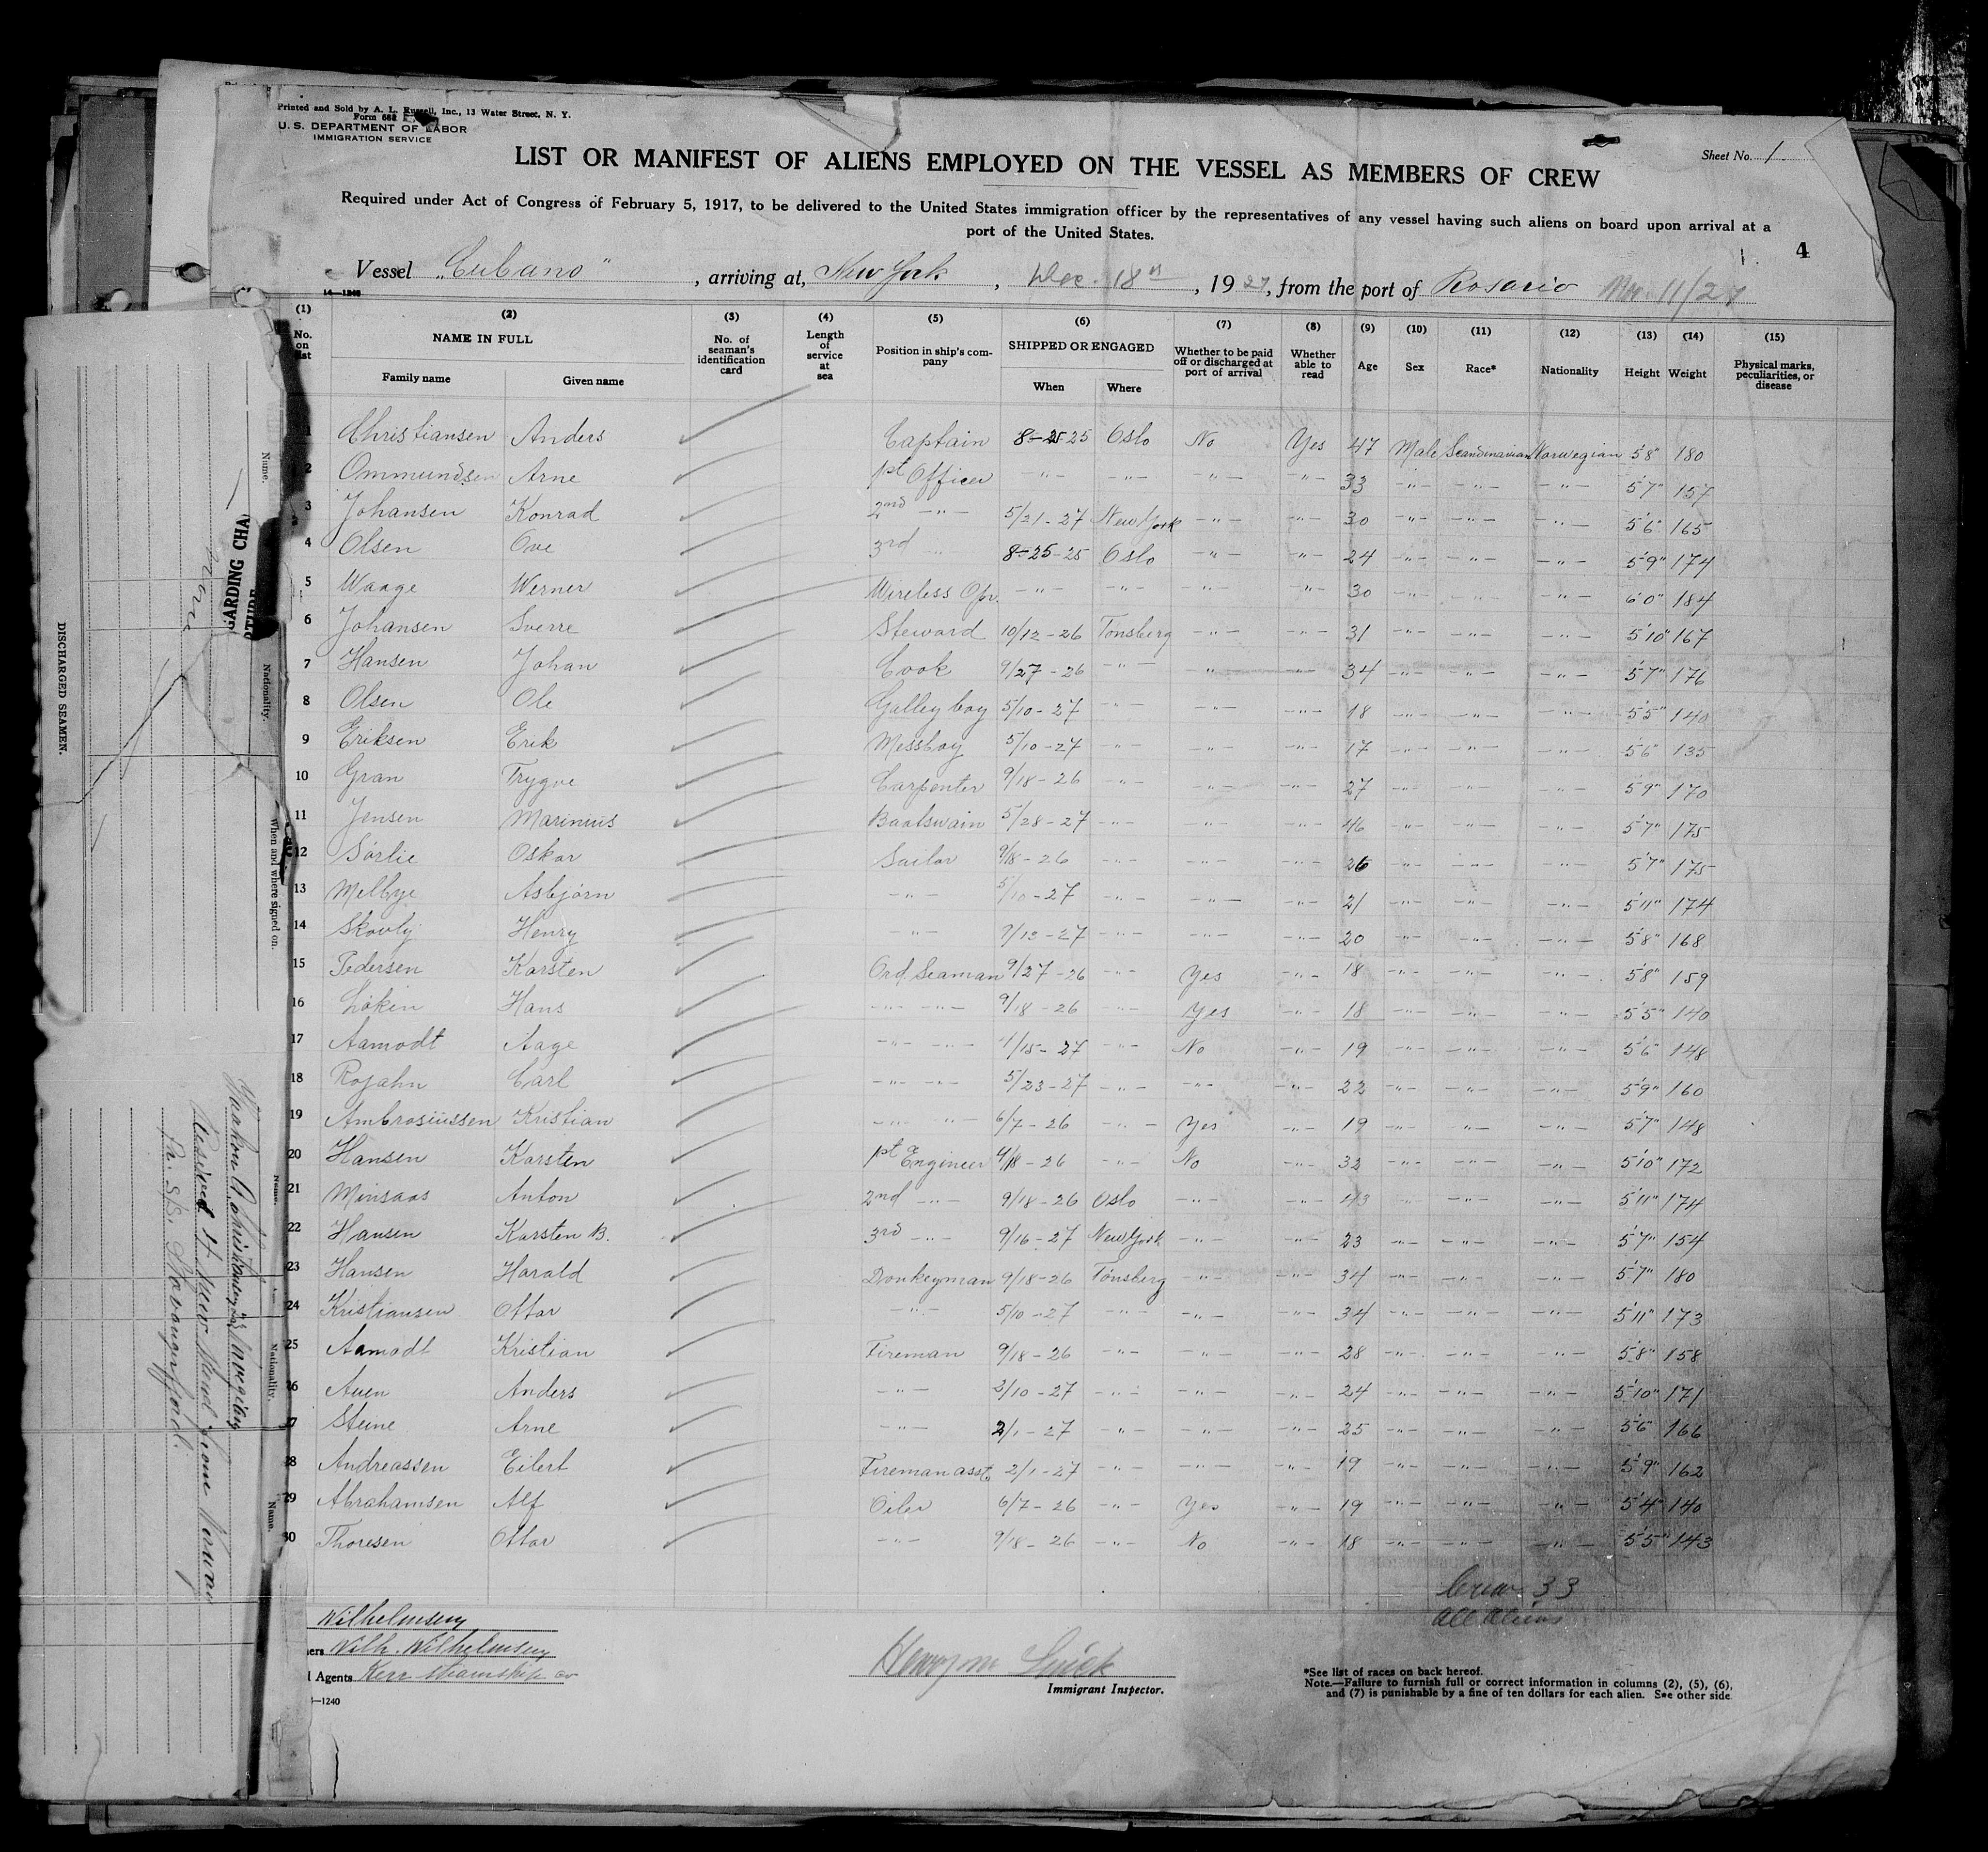 Printed and Sold by A. L. Russell, Inc., 13 Water Street, N. Y.
Form 688
U. S. DEPARTMENT OF LABOR
IMMIGRATION SERVICE
Sheet No. 1.
LIST OR MANIFEST OF ALIENS EMPLOYED ON THE VESSEL AS MEMBERS OF CREW
Required under Act of Congress of February 5, 1917, to be delivered to the United States immigration officer by the representatives of any vessel having such aliens on board upon arrival at a
port of the United States.
4
Vessel „Cubano" , arriving at, New York , Dec. 18th , 1927, from the port of Rosario 11/27
14—1240
(1) (2) (3) (4) (5) (6) (7) (8) (9) (10) (11) (12) (13) (14) (15)
No. on list NAME IN FULL Family name Given name No. of seaman's identification card Length of service at sea Position in ship's company SHIPPED OR ENGAGED When Where Whether to be paid off or discharged at port of arrival Whether able to read Age Sex Race* Nationality Height Weight Physical marks, peculiarities, or disease
1 Christiansen Anders Captain 8-25-25 Oslo No Yes 47 Male Scandinavian Norwegian 5'8" 180
2 Ommundsen Arne 1st Officer -"- -"- -"- -"- 33 -"- -"- -"- 5'7" 157
3 Johansen Konrad 2nd -"- 5/21-27 New York -"- -"- 30 -"- -"- -"- 5'6" 165
4 Olsen Ove 3rd -"- 8-25-25 Oslo -"- -"- 24 -"- -"- -"- 5'9" 174
5 Waage Werner Wireless Opr. -"- -"- -"- -"- 30 -"- -"- -"- 6'0" 184
6 Johansen Sverre Steward 10/12-26 Tonsberg -"- -"- 31 -"- -"- -"- 5'10" 167
7 Hansen Johan Cook 9/27-26 -"- -"- -"- 34 -"- -"- -"- 5'7" 176
8 Olsen Ole Galley boy 5/10-27 -"- -"- -"- 18 -"- -"- -"- 5'5" 140
9 Eriksen Erik Messboy 5/10-27 -"- -"- -"- 17 -"- -"- -"- 5'6" 135
10 Gran Trygve Carpenter 9/18-26 -"- -"- -"- 27 -"- -"- -"- 5'9" 170
11 Jensen Marinius Baatswain 5/28-27 -"- -"- -"- 46 -"- -"- -"- 5'7" 175
12 Sörlie Oskar Sailor 9/18-26 -"- -"- -"- 26 -"- -"- -"- 5'7" 175
13 Melbye Asbjörn -"- 5/10-27 -"- -"- -"- 21 -"- -"- -"- 5'11" 174
14 Skovly Henry -"- 9/13-27 -"- -"- -"- 20 -"- -"- -"- 5'8" 168
15 Pedersen Karsten Ord. Seaman 9/27-26 -"- Yes -"- 18 -"- -"- -"- 5'8" 159
16 Löken Hans -"- -"- 9/18-26 -"- Yes -"- 18 -"- -"- -"- 5'5" 140
17 Aamodt Aage -"- -"- 1/15-27 -"- No -"- 19 -"- -"- -"- 5'6" 148
18 Rojahn Carl -"- -"- 5/23-27 -"- -"- -"- 22 -"- -"- -"- 5'9" 160
19 Ambrosiussen Kristian -"- -"- 6/7-26 -"- Yes -"- 19 -"- -"- -"- 5'7" 148
20 Hansen Karsten 1st Engineer 9/18-26 -"- No -"- 32 -"- -"- -"- 5'10" 172
21 Minsaas Anton 2nd -"- 9/18-26 Oslo -"- -"- 43 -"- -"- -"- 5'11" 174
22 Hansen Karsten B. 3rd -"- 9/16-27 New York -"- -"- 23 -"- -"- -"- 5'7" 154
23 Hansen Harald Donkeyman 9/18-26 Tönsberg -"- -"- 34 -"- -"- -"- 5'7" 180
24 Kristiansen Ottar -"- 5/10-27 -"- -"- -"- 34 -"- -"- -"- 5'11" 173
25 Aamodt Kristian Fireman 9/18-26 -"- -"- -"- 28 -"- -"- -"- 5'8" 158
26 Auen Anders -"- 2/10-27 -"- -"- -"- 24 -"- -"- -"- 5'10" 171
27 Steine Arne -"- 2/1-27 -"- -"- -"- 25 -"- -"- -"- 5'6" 166
28 Andreassen Eilert Fireman asst. 2/1-27 -"- -"- -"- 19 -"- -"- -"- 5'9" 162
29 Abrahamsen Alf Oiler 6/7-26 -"- Yes -"- 19 -"- -"- -"- 5'4" 140
30 Thoresen Ottar -"- 9/18-26 -"- No -"- 18 -"- -"- -"- 5'5" 143
Crew 33
all aliens
Wilhelmsen
ners Wilh. Wilhelmsen
l Agents Kerr Steamship co
—1240
Immigrant Inspector.
*See list of races on back hereof.
Note.—Failure to furnish full or correct information in columns (2), (5), (6),
and (7) is punishable by a fine of ten dollars for each alien. See other side
DISCHARGED SEAMEN.
GARDING CHA
Name.
Nationality.
When and where signed on.
Name.
Nationality.
Name.
Haakon
Norway
pr. S/S. Stavangerfjord.